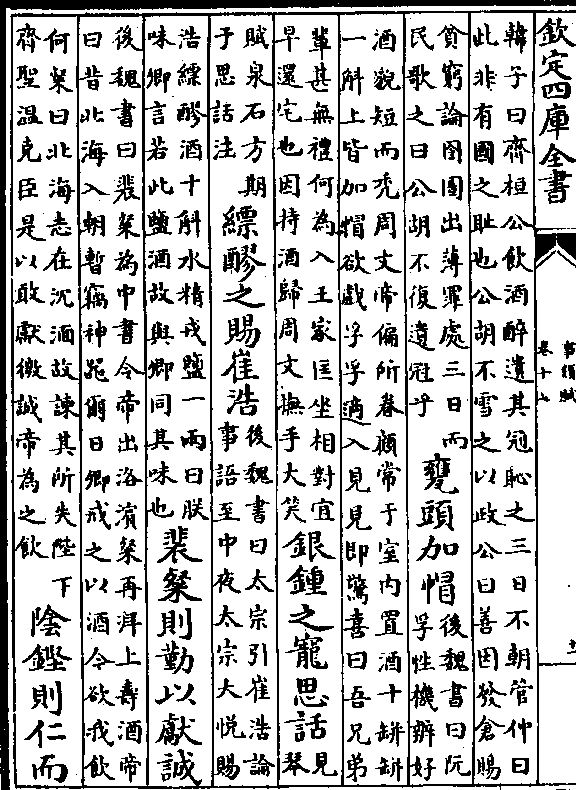 欽定四庫全書
事類賦
卷十七
韓子曰齊桓公飲酒醉遺其冠恥之三日不朝管仲曰
此非有國之恥也公胡不雪之以政公曰善因發倉賜
貧窮論囹圄出薄罪處三日而
民歌之曰公胡不復遺冠乎
甕頭加帽
後魏書曰阮
孚性機辦好
酒貌短而禿周文帝偏所眷顧常于室内置酒十缾缾
一斛上皆加帽欲戲孚孚適入見見即驚喜曰吾兄弟
輩甚無禮何為入王家匡坐相對宜
早還宅也因持酒歸周文撫手大笑
銀鍾之寵思話
見
琴
賦泉石方期
于思話注
縹醪之賜崔浩
後魏書曰太宗引崔浩論
事語至中夜太宗大悦賜
浩縹醪酒十斛水精戎鹽一兩曰朕
味卿言若此鹽酒故與卿同其味也
裴粲則勤以獻誠
後魏書曰裴粲為中書令帝出洛濱粲再拜上壽酒帝
曰昔北海入朝暫竊神器爾日卿戒之以酒今欲我飲
何粲曰北海志在沉湎故諫其所失陛下
齊聖温克臣是以敢獻微誠帝為之飲
陰鏗則仁而